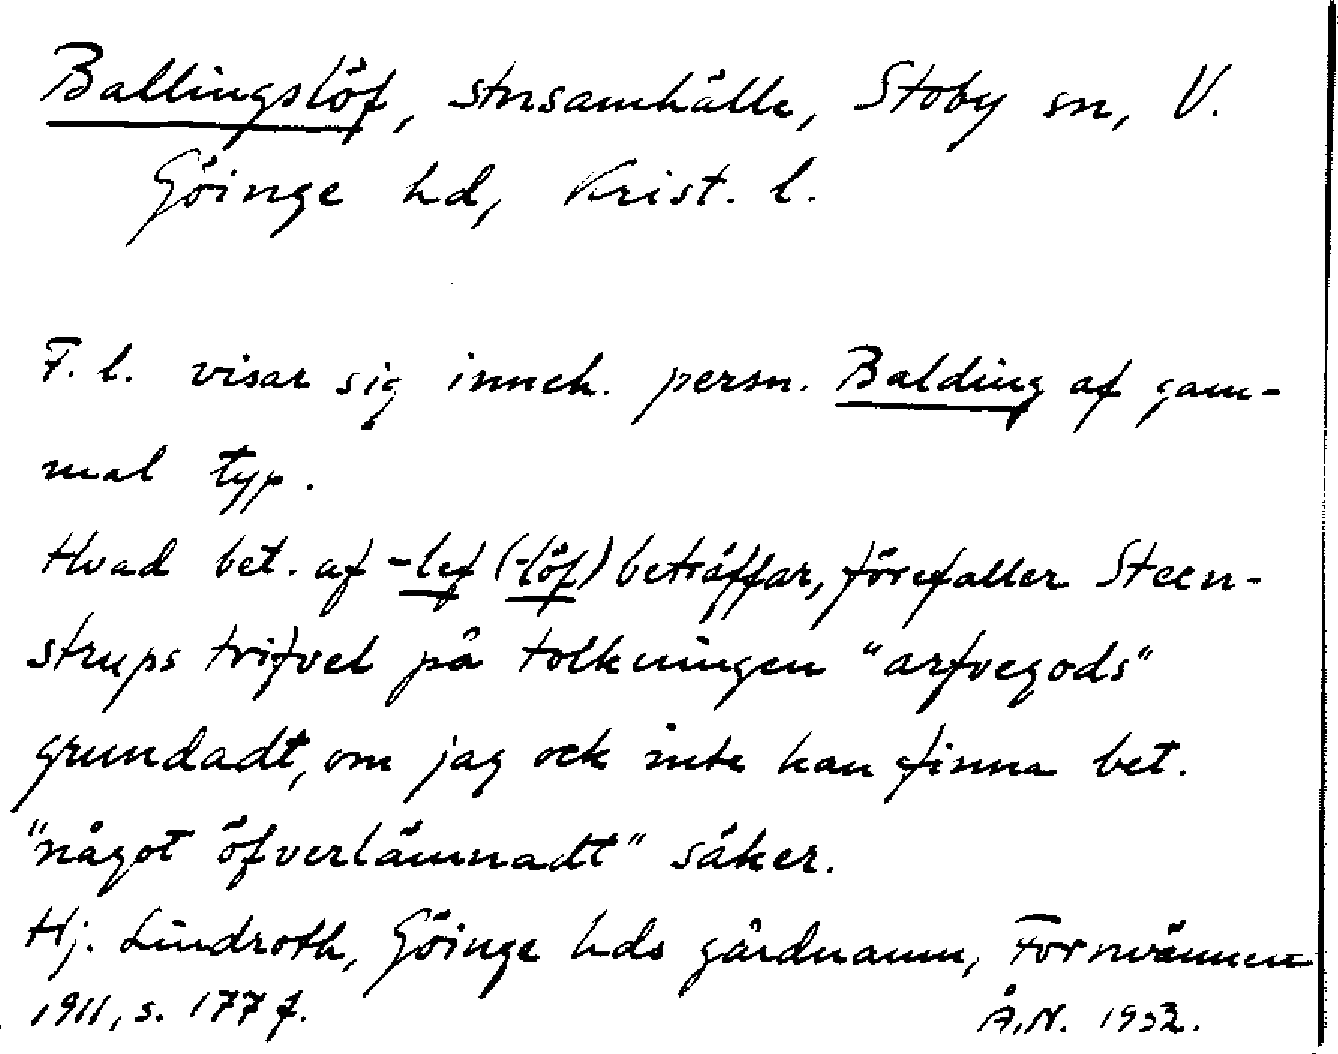 Ballingslöf, stnsamhälle, Stoby sn, V.
Göinge hd, Krist. l.
F. l. visar sig inneh. persn. Balding af gam-
mal typ.
Hvad bet. af -lef (-löf) beträffar, förefaller Steen-
strups tvifvel på tolkningen "arfvegods"
grundadt, om jag ock inte kan finna bet.
"något öfverlämnadt" säker.
Hj. Lindroth, Göinge hds gårdnamn, Fornvännen
1911, s. 177 f.
Å.N. 1932.